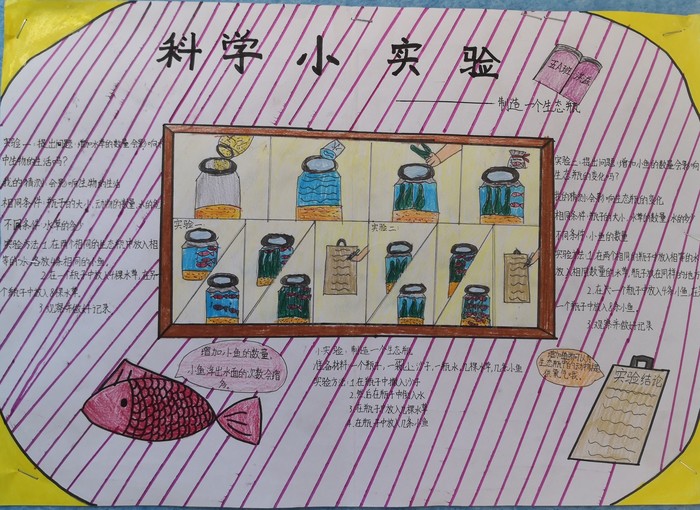 科学小实验
制造一个生态瓶
实验一:提出问题:增加水草的数量会影响
中生物的生活吗?
我的猜测:会影响生物的生活
相同条件:瓶子的大小、动物的数量、水的
不同条件:水草的多少
实验方法:1.在两个相同的生态瓶中放入相
等的水,各放
相同的小鱼。
2.在一个瓶子中放入
棵水草,在另一
个瓶子中放入
棵水草。
3.观察并做好记录
实验一:
实验二:
实验二:提出问题:增加小鱼的数量会影响
生态瓶的变化吗?
我的猜测:会影响生态瓶的变化
相同条件:瓶子的大小、水草的数量、水的
不同条件:小鱼的数量
实验方法:1.在两个相同的瓶子中放入相等的水
放入相同数量的水草,瓶子放在同样的地
一个瓶子中放入
条小鱼。
3.观察并做好记录
增加小鱼的数量,
小鱼浮出水面的次数会增
多。
小实验:制造一个生态瓶
准备材料:一个瓶子,一袋沙子,一瓶水,几棵水草,几条小鱼
实验方法:1.在瓶子中放入沙子
2.然后在瓶子中倒入水
3.在瓶子中放入几棵水草
4.在瓶子中放入几条小鱼
实验结论